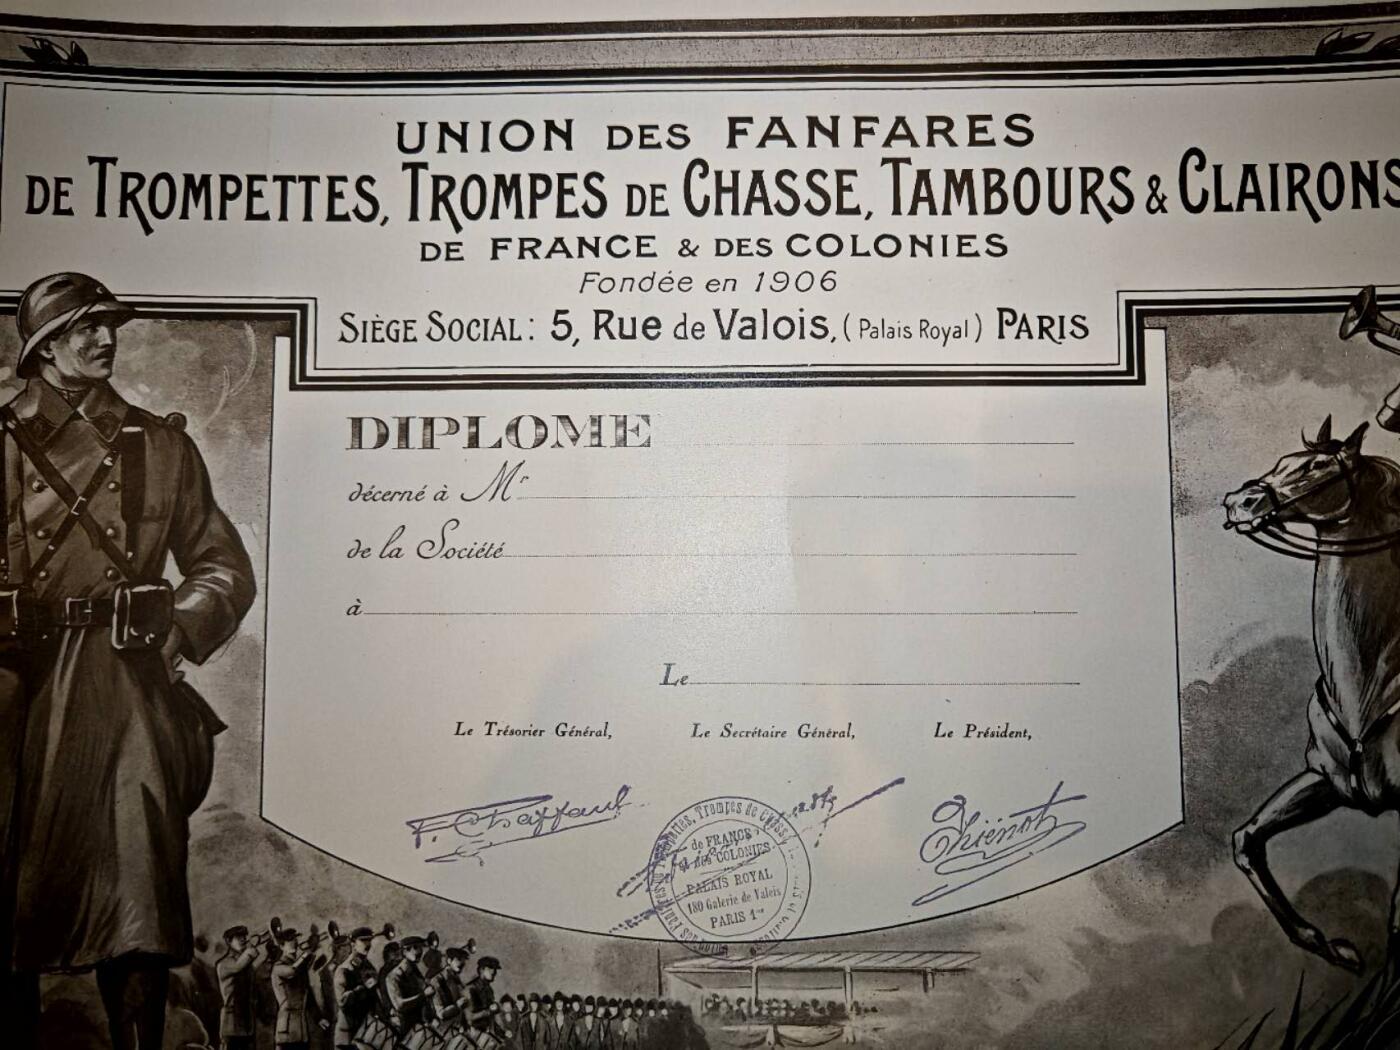 UNION DES FANFARES
DE TROMPETTES, TROMPES DE CHASSE, TAMBOURS & CLAIRONS
DE FRANCE & DES COLONIES
Fondée en 1906
SIÈGE SOCIAL: 5, Rue de Valois, (Palais Royal) PARIS
DIPLOME
décerné à Mr
de la Société
à
Le
Le Trésorier Général, Le Secrétaire Général, Le Président,
F. Chaffaut
Thiénot
Trompes de Chasse
de FRANCE
et des COLONIES
PALAIS ROYAL
180 Galerie de Valois
PARIS 1er